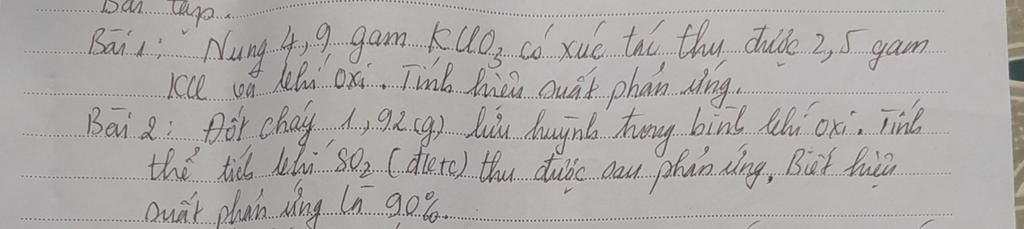 Bài tập.
Bài 1: Nung 4,9 gam KClO3 có xúc tác thu được 2,5 gam
KCl và khí oxi. Tính hiệu suất phản ứng.
Bài 2: Đốt cháy 1,92(g) lưu huỳnh trong bình khí oxi. Tính
thể tích khí SO2 (đktc) thu được sau phản ứng. Biết hiệu
suất phản ứng là 90%.